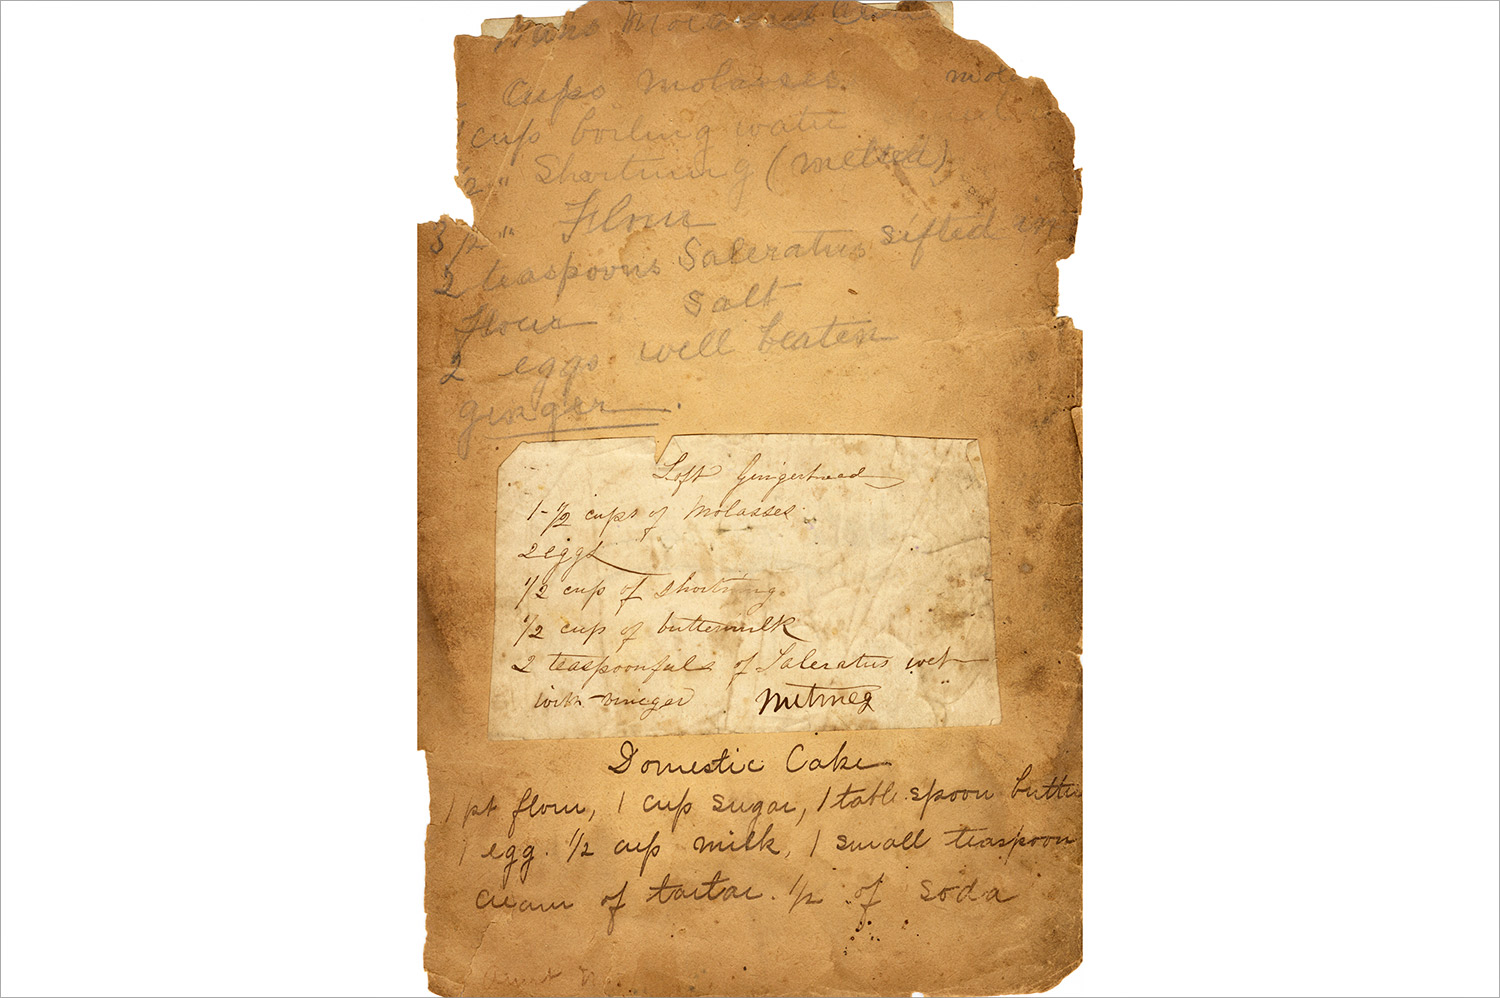 Molasses
Cups Molasses mola
1 cup boiling water
1/2 " Shortning (melted)
3 1/2 " Flour
2 teaspoons Saleratus sifted in
flour Salt
2 eggs well beaten
ginger.
Soft Gingerbread
1-1/2 cups of Molasses
2 eggs
1/2 cup of shortning
1/2 cup of buttermilk
2 teaspoonfuls of Saleratus wet
with vinegar Nutmeg
Domestic Cake
1 pt flour, 1 cup sugar, 1 table spoon butte
1 egg. 1/2 cup milk, 1 small teaspoon
cream of tartar. 1/2 " of soda
Aunt